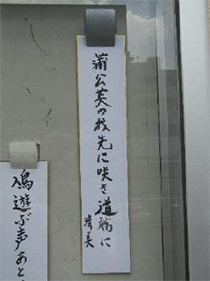 蒲公英の我先に咲き道端に
美
鳩遊ぶ声あと